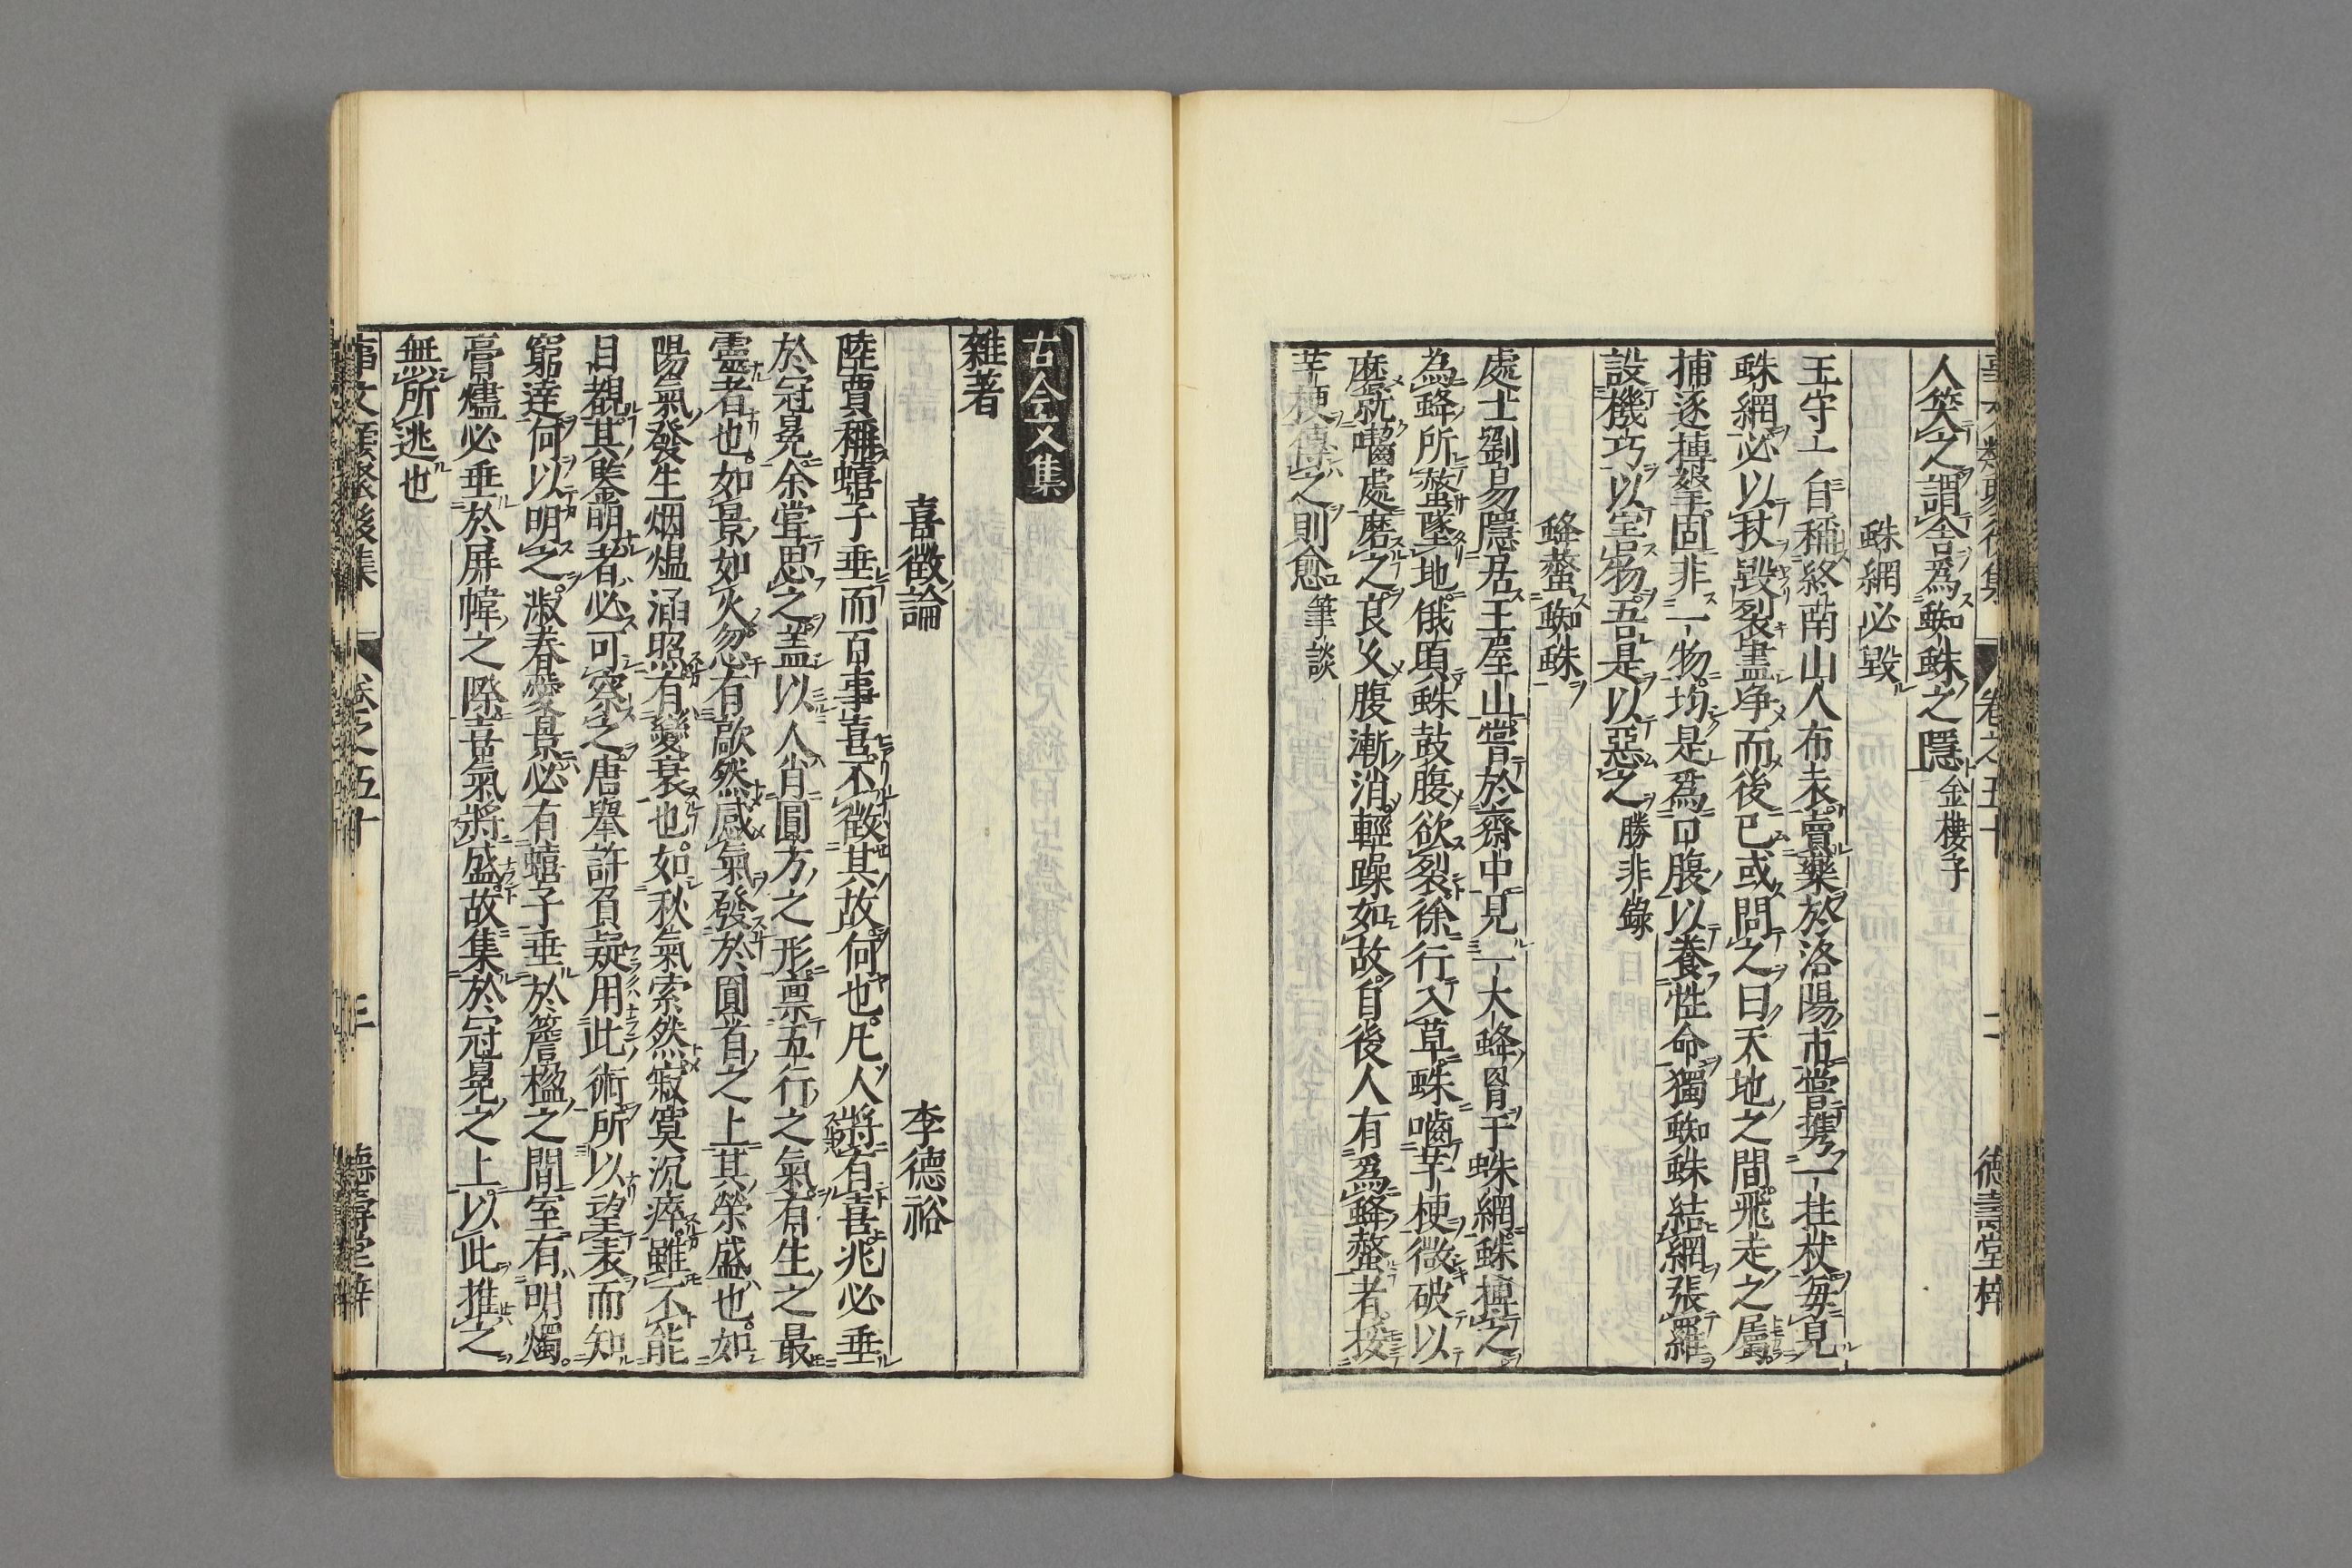 人笑之謂舎為蜘蛛之隱金樓子
蛛網必毀
王守一自稱終南山人布衣賣藥於洛陽市嘗携一拄杖毎見
蛛網必以杖毀裂盡净而後已或問之曰天地之間飛走之屬
捕逐摶擊固非一物均是爲口腹以養性命獨蜘蛛結網張羅
設機巧以害物吾是以惡之勝非錄
蜂螫蜘蛛
處士劉易隱居王屋山嘗於齋中見一大蜂罥于蛛網蛛搏之
為蜂所螫墜地俄頃蛛鼓腹欲裂徐行入草蛛嚙芋梗微破以
磨就嚙處磨之良久腹漸消輕躁如故自後人有爲蜂螫者挼
芋梗傅之則愈筆談
古今文集
雜著
喜徵論 李德裕
陸賈稱蟢子垂而百事喜不徵其故何也凡人將有喜兆必垂
於冠冕余嘗思之盖以人肖圓方之形禀五行之氣有生之最
靈者也如景如火忽有歊然感氣發於圓首之上其榮盛也如
陽氣發生烟煴涵照有變衰也如秋氣索然寂寞沉瘁雖不能
目覩其奥明者必可察之唐舉許負疑用此術所以望表而知
窮達何以明之淑春愛景必有蟢子垂於簷楹之間室有明燭
膏爐必垂於屏幃之際喜氣將盛故集於冠冕之上以此推之
無所逃也
事文類聚後集 卷之五十 三 德壽堂梓